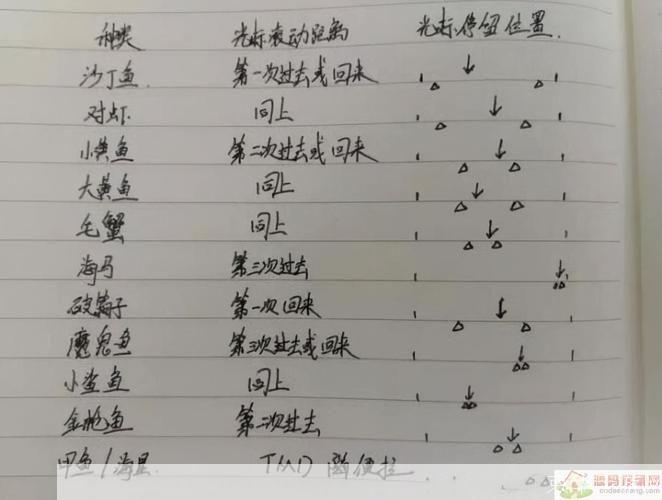 种类 光标滚动距离 光标停留位置.
沙丁鱼. 第一次过去或回来
对虾 同上
小黄鱼 第二次过去或回来
大黄鱼 同上
毛蟹 同上
海马 第三次过去
破 子 第一次回来
魔鬼鱼 第三次过去或回来
小鲨鱼 同上
金枪鱼 第二次过去
甲鱼/海星 TMD 随便拉
源码技研网